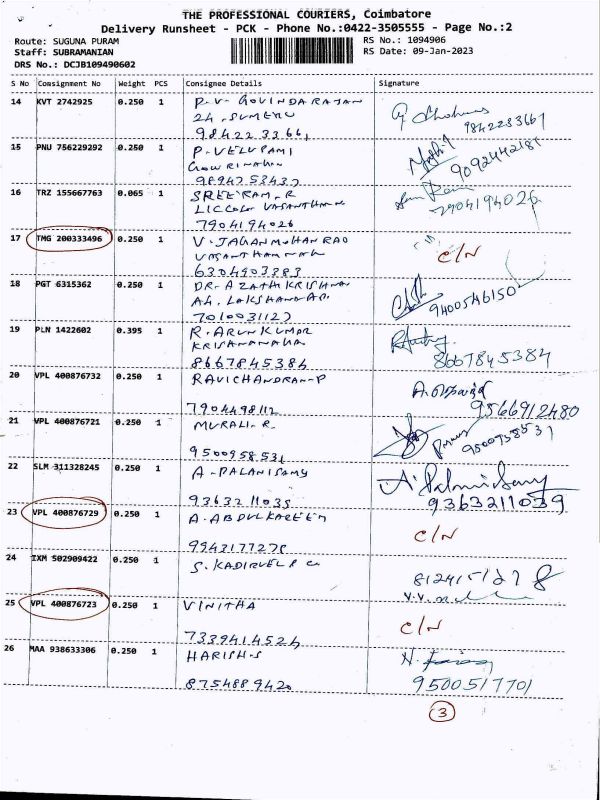 THE PROFESSIONAL COURIERS, Coimbatore
Delivery Runsheet - PCK - Phone No.:0422-3505555 - Page No.:2
Route: SUGUNA PURAM
RS No.: 1094906
Staff: SUBRAMANIAN
RS Date: 09-Jan-2023
DRS No.: DCJB109490602
S No Consignment No Weight PCS Consignee Details Signature
14 KVT 2742925 0.250 1 P.V. GOVINDARAJAN
24, SUMERU
98422 33661 9842233661
15 PNU 756229292 0.250 1 P. VELUPAMI
GOWRINAGAR
9894753437 9092442181
16 TRZ 155667763 0.065 1 SREERAM.R
7904194026 7904194026
17 TMG 200333496 0.250 1 V. JAGANMOHAN RAO
VASANTHAM NAGAR C/N
6304903383
18 PGT 6315362 0.250 1 DR. AZATH KRISHNA
7010031127 9400546150
19 PLN 1422602 0.395 1 R. ARUN KUMAR
8667845384 8667845384
20 VPL 400876732 0.250 1 RAVICHANDRAN-P
7904498112 9566912480
21 VPL 400876721 0.250 1 MURALI.R
9500958531 9500958531
22 SLM 311328245 0.250 1 A-PALANISAMY A. Palanisamy
9363211039 9363211039
23 VPL 400876729 0.250 1 A. ABDULKAREEM
9943177278 C/N
24 IXM 502909422 0.250 1 S. KADIRVEL
25 VPL 400876723 0.250 1 VINITHA
7339414524 C/N
26 MAA 938633306 0.250 1 HARISH-S
8754889420 9500517701
3